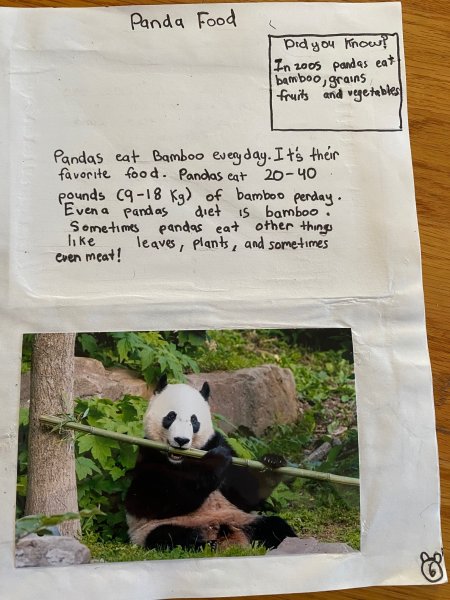 Panda Food
Did you know?
In 2005 pandas eat
bamboo, grains
fruits and vegetables
Pandas eat Bamboo everyday. It's their
favorite food. Pandas eat 20-40
pounds (9-18 Kg) of bamboo perday.
Even a pandas diet is bamboo.
Sometimes pandas eat other things
like leaves, plants, and sometimes
even meat!
6